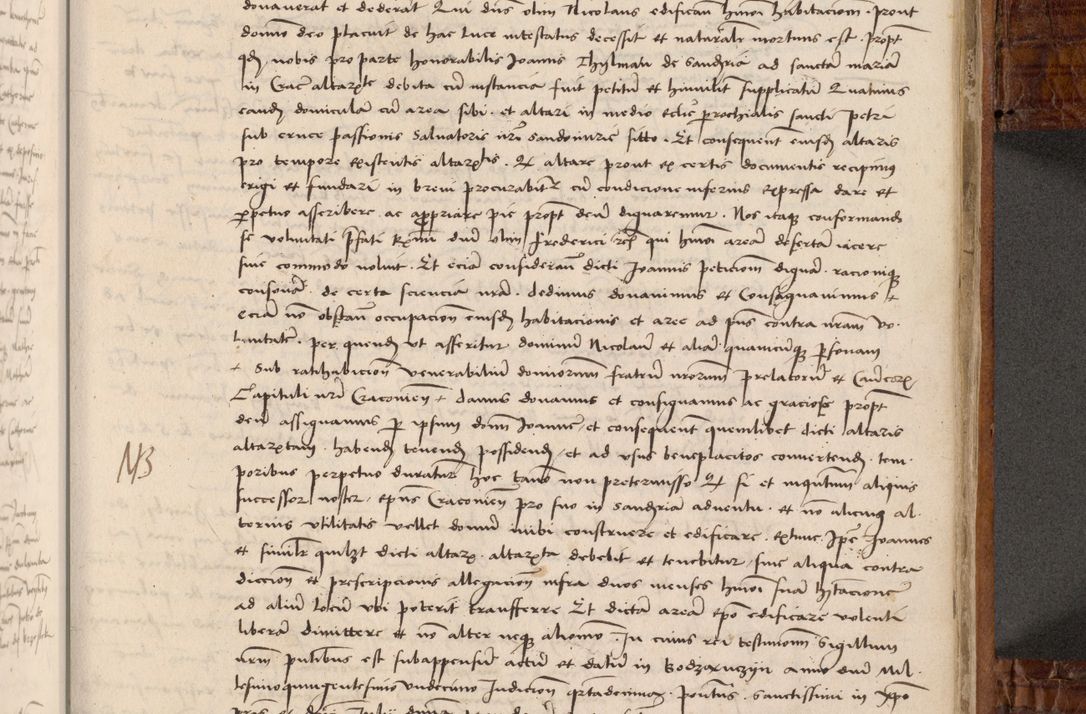 donaverat et dederat Qui dns olim Nicolaus edificau hmoi habitaciom · prout
domino deo placuit de hac luce intestatus decessit et naturali mortuus est · propt
qd nobis pro parte honorabilis Joannis Thylman de Sandomiria ad sanctam mariam
in Crac altarxte debita cu instancia fuit petitu et humilit supplicatu Quatinus
eandem domiculam cu area sibi · et altari in medio ecclie prochialis sancti Petri
sub cruce passionis Salvatoris nri sandomirie sitto · Et consequent eiusdem altaris
pro tempore existentis altarxtis · Qd altare prout ex certis documentis recipimus
erigi et fundari in brevi procurabitur cu condicione inferius expressa dare et
perpetuo asscribere ac appropriare pie propt deum dignaremur · Nos itaque conformand
se voluntati pfati Rmi dni olim Frederici qui hmoi aream desertam iacere
sue commodo noluit · Et eciam considerau dicti Joannis peticiom dignam · racionique
consonam · de certa sciencia nra · dedimus donavimus et Consignavimus
eciam no obstan occupacion eiusdem habitacionis et aree ad pns contra nram vo-
luntatem · per quendam ut asseritur dominum Nicolaum et aliam quamcunque personam
+ Sub ratihabicion venerabilium dominorum fratrum nrorum prelatorum et Canicorum
Capituli nri Cracovien + damus donamus et consignamus ac graciose propt
deum assignamus per ipsum dom Joannem et consequent quemlibet dicti altaris
altarxtam · habend tenend possidend et ad usus beneplacitos convertend · tem-
poribus perpetuo duratur hoc tamen non pretermisso Qd si et inquntum aliquis
successor noster epus Cracovien pro suo in Sandomiria adventu · et no alicuius al-
terius utilitatis vellet domum inibi construere et edificare · extunc Ipse Joannes
et similr quilzt dicti altarx · altarxta debebit et tenebitur sine aliqua contra
diccion et prescripcionis allegacion infra duos menses hmoi suam hitacionem
ad alium locum ubi poterit transferre Et dictam aream epo edificare volenti
liberam dimittere et no alter neque aliomo · In cuius rei testimoni Sigillum
nrm pntibus est subappensum actum et datum in Bodzanczyn anno dni Mil-
lesimoquingentesimo undecimo Indicion qrtadecima · Pontus · sanctissimi in xpo
NB